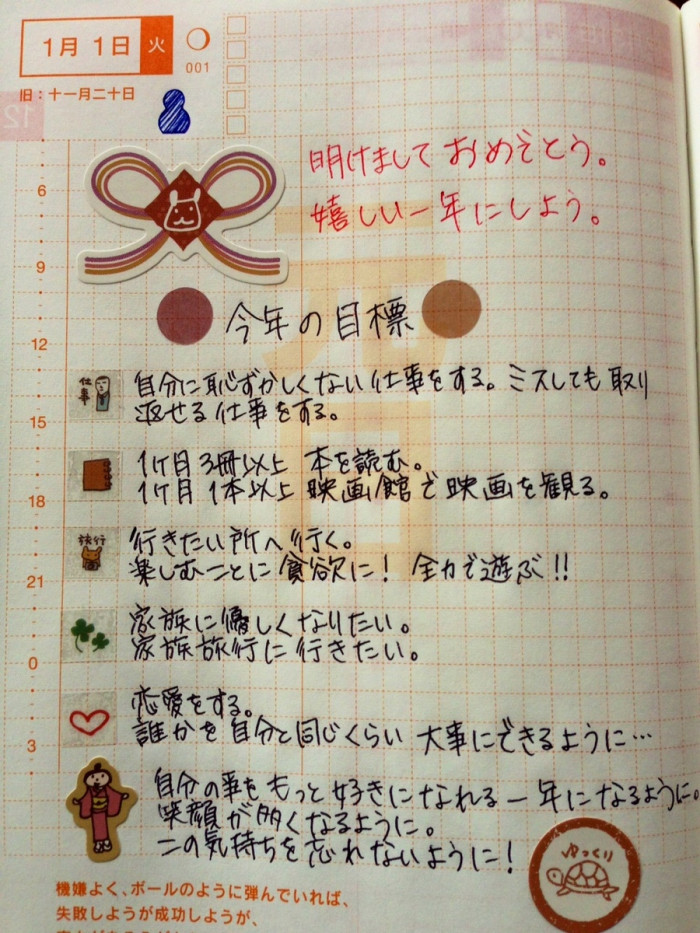 1月 1日 火
001
旧：十一月二十日
12
明けまして おめでとう。
嬉しい一年にしよう。
6
9
12
15
18
21
0
3
今年の目標
仕事
自分に恥ずかしくない仕事をする。ミスしても取り
返せる仕事をする。
1ヶ月 3冊以上 本を読む。
1ヶ月 1本以上 映画館で映画を観る。
旅行
行きたい所へ行く。
楽しむことに貪欲に! 全力で遊ぶ!!
家族に優しくなりたい。
家族旅行に行きたい。
恋愛をする。
誰かを自分と同じくらい 大事にできるように…
自分の事をもっと好きになれる一年になるように。
笑顔が多くなるように。
この気持ちを忘れないように!
ゆっくり
機嫌よく、ボールのように弾んでいれば、
失敗しようが成功しようが、